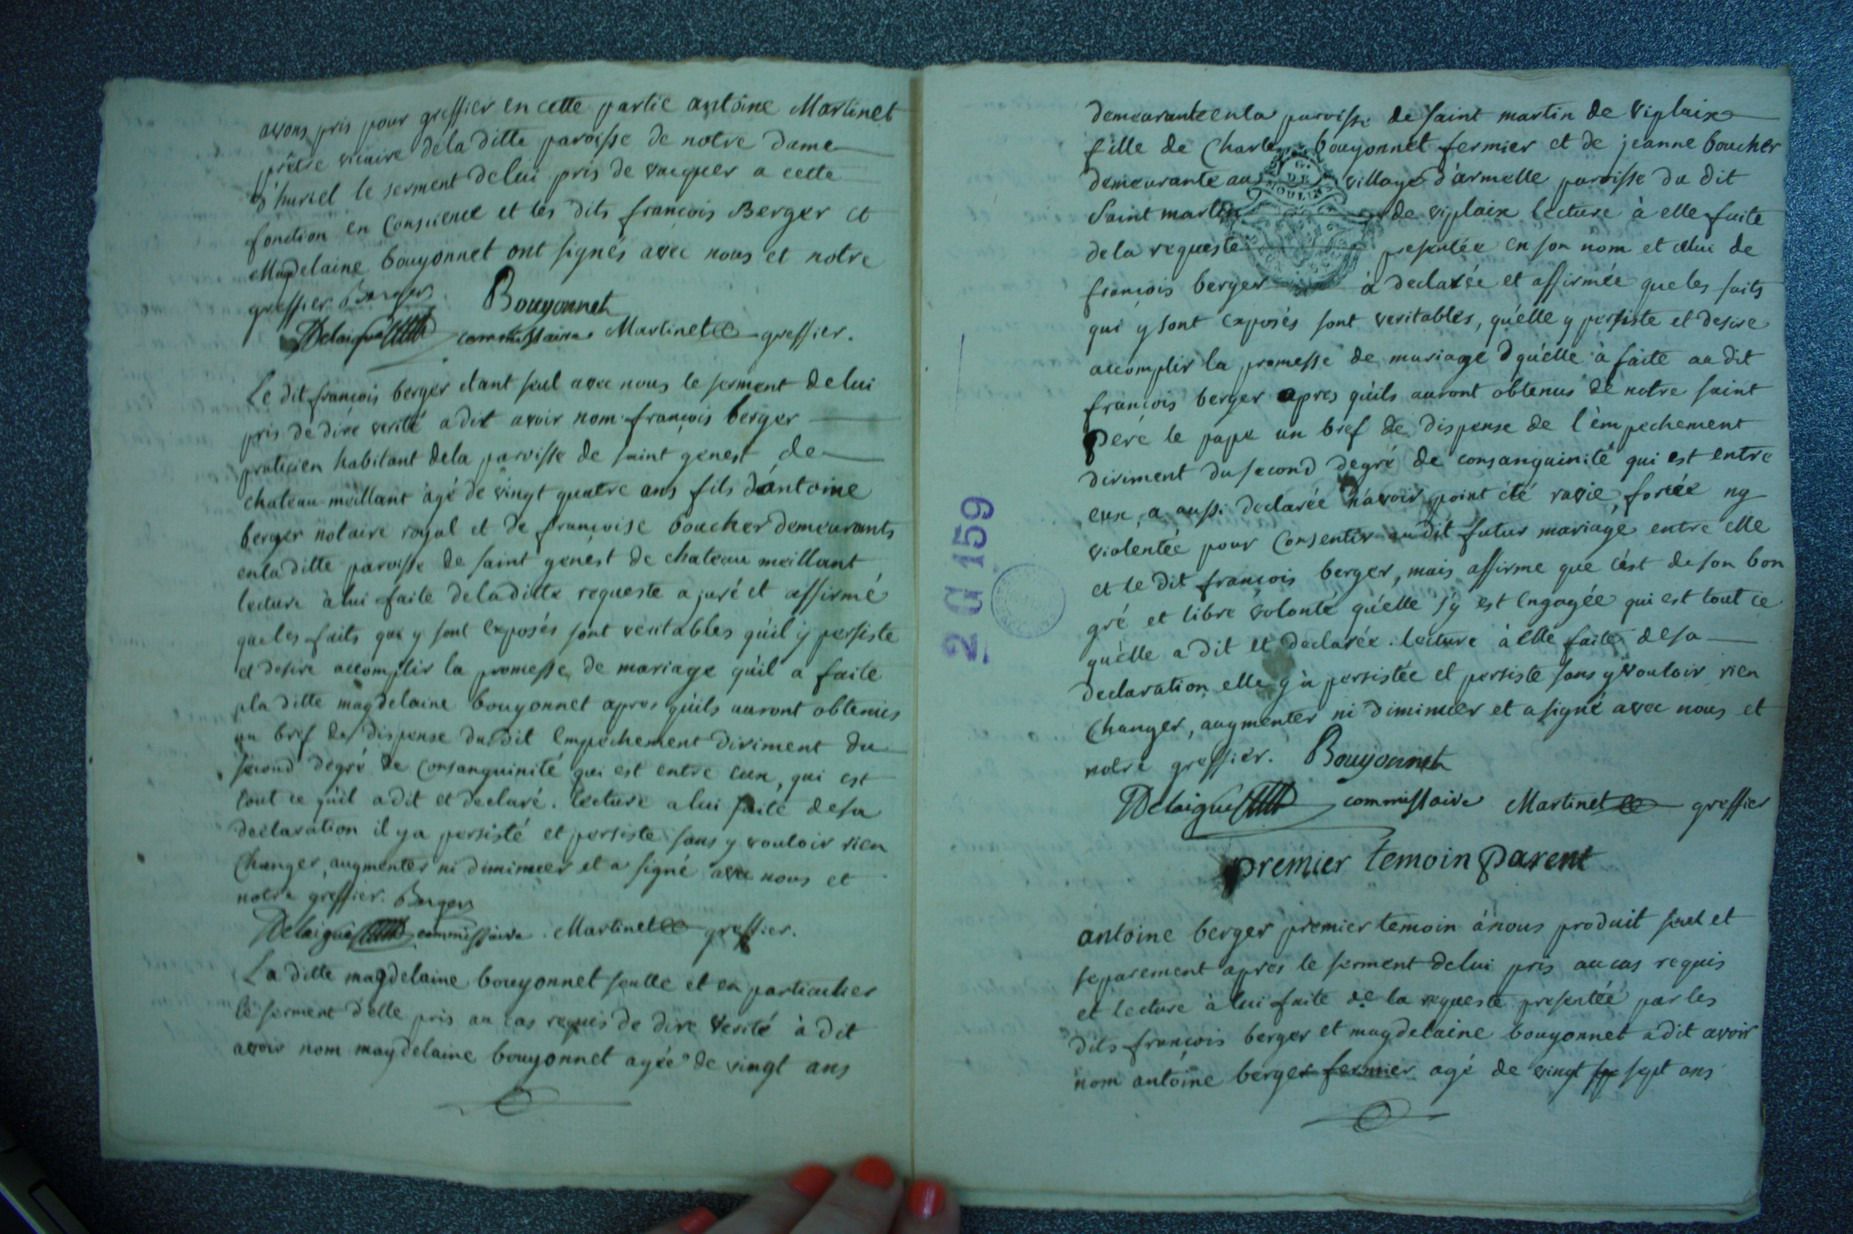 avons pris pour greffier en cette partie antoine Martinet
prêtre vicaire de la ditte paroisse de notre dame
d'huriel le serment de lui pris de vacquer a cette
fonction en Conscience et les dits françois Berger et
Magdelaine bouyonnet ont signés avec nous et notre
greffier. Berger Bouyonnet
Delaigue commissaire Martinet greffier.
Le dit françois berger etant seul avec nous le serment de lui
pris de dire verité a dit avoir nom françois berger
praticien habitant de la paroisse de saint genest de
chateau meillant agé de vingt quatre ans fils d'antoine
berger notaire royal et de françoise boucher demeurants
en la ditte paroisse de saint genést de chateau meillant
lecture à lui faite de la ditte requeste a juré et affirmé
que les faits qui y sont exposés sont véritables qu'il y persiste
et desire accomplir la promesse de mariage qu'il a faite
a la ditte magdelaine bouyonnet apres qu'ils auront obtenus
un bref de dispense du dit Empêchement diriment du
second degré de Consanguinité qui est entre eux, qui est
tout ce qu'il a dit et declaré. lecture a lui faite de sa
declaration il y a persisté et persiste sans y vouloir rien
Changer, augmenter ni diminuer et a signé avec nous et
notre greffier. Berger
Delaigue commissaire. Martinet greffier.
La ditte magdelaine bouyonnet seulle et en particulier
le serment d'elle pris au cas requis de dire verité à dit
avoir nom magdelaine bouyonnet agée de vingt ans
demeurante en la paroisse de Saint martin de Viplaix
fille de Charles bouyonnet fermier et de jeanne boucher
demeurante au village d'armelle paroisse du dit
Saint martin de viplaix lecture à elle faite
de la requeste presentée en son nom et celui de
françois berger à declarée et affirmée que les faits
qui y sont exposés sont veritables, qu'elle y persiste et desire
accomplir la promesse de mariage qu'elle à faite au dit
françois berger apres qu'ils auront obtenus de notre saint
Pere le pape un bref de dispense de l'émpechement
diriment du second degré de consanguinité qui est entre
eux, a aussi declarée n'avoir point été ravie, forcée ny
violentée pour Consentir au dit futur mariage entre elle
et le dit françois berger, mais affirme que c'ést de son bon
gré et libre volonté qu'elle s'y est Engagée qui est tout ce
qu'elle a dit et declarée. lecture à elle faite de sa
declaration elle y a persistée et persiste sans y vouloir rien
Changer, augmenter ni diminuer et a signé avec nous et
notre greffier. Bouyonnet
Delaigue commissaire Martinet greffier
premier temoin parent
antoine berger premier temoin à nous produit seul et
separement apres le serment de lui pris au cas requis
et lecture à lui faite de la requeste presentée par les
dits françois berger et magdelaine bouyonnet a dit avoir
nom antoine berger fermier agé de vingt sept ans
2 G 159
G. DE MOULINS